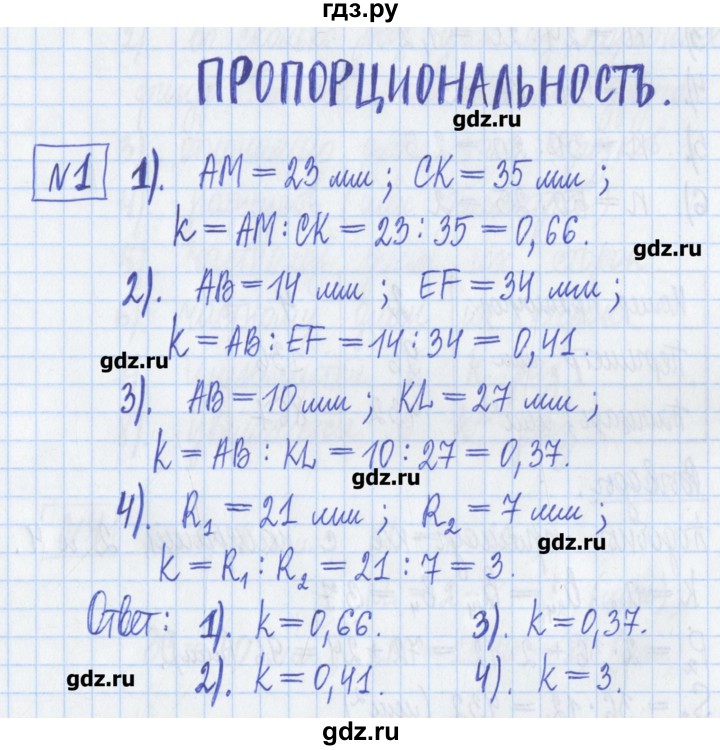 гдз.ру
ПРОПОРЦИОНАЛЬНОСТЬ.
gdz.ru
№1 1). AM = 23 мм ; CK = 35 мм ;
k = AM : CK = 23 : 35 = 0,66.
gdz.ru
2). AB = 14 мм ; EF = 34 мм ;
k = AB : EF = 14 : 34 = 0,41.
gdz.ru
3). AB = 10 мм ; KL = 27 мм ;
k = AB : KL = 10 : 27 = 0,37.
gdz.ru
4). R₁ = 21 мм ; R₂ = 7 мм ;
gdz.ru
k = R₁ : R₂ = 21 : 7 = 3.
Ответ: 1). k = 0,66. 3). k = 0,37.
2). k = 0,41. 4). k = 3.
gdz.ru
gdz.ru